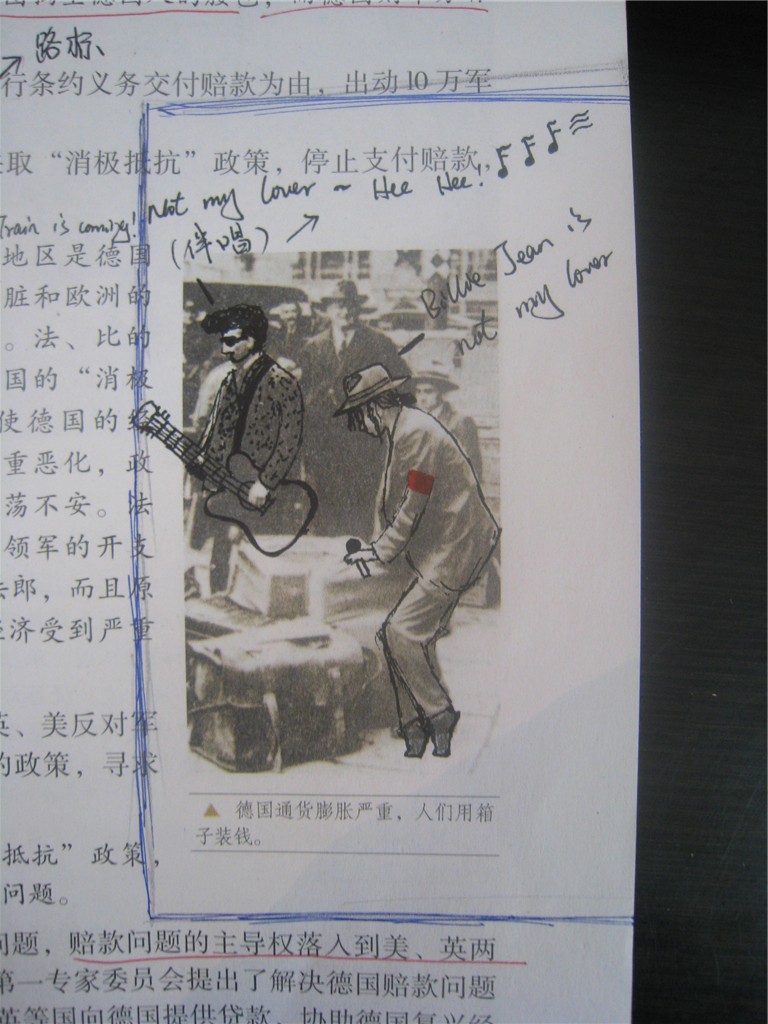 路标
行条约义务交付赔款为由，出动10万军
取“消极抵抗”政策，停止支付赔款，
Train is coming! Not my lover ~ Hee Hee!
(伴唱)
Billie Jean is
not my lover
地区是德国
脏和欧洲的
。法、比的
国的“消极
使德国的经
重恶化，政
荡不安。法
领军的开支
法郎，而且原
经济受到严重
英、美反对军
的政策，寻求
▲ 德国通货膨胀严重，人们用箱
子装钱。
抵抗”政策，
问题。
问题，赔款问题的主导权落入到美、英两
第一专家委员会提出了解决德国赔款问题
英等国向德国提供贷款，协助德国复兴经